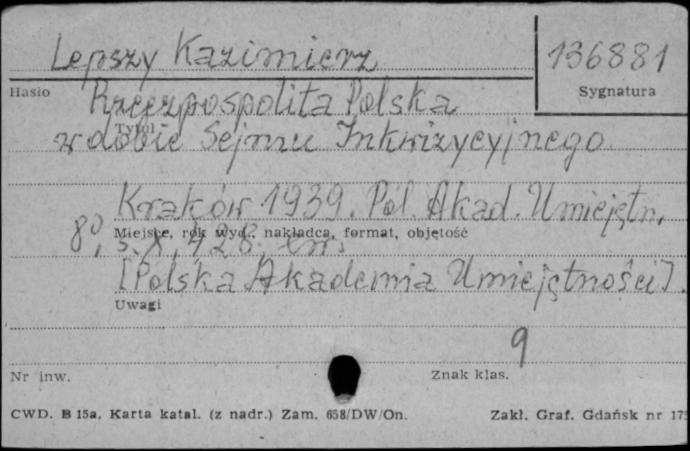 Lepszy Kazimierz
136881
Hasło
Sygnatura
Rzeczpospolita Polska
Tytuł
w dobie Sejmu Inkwizycyjnego.
Kraków 1939. Pol. Akad. Umiejętn.
Miejsce, rok wyd., nakładca, format, objętość
8º, s. X, 428,
[Polska Akademia Umiejętności].
Uwagi
9
Nr inw.
Znak klas.
CWD. B 15a. Karta katal. (z nadr.) Zam. 658/DW/On.
Zakł. Graf. Gdańsk nr 175